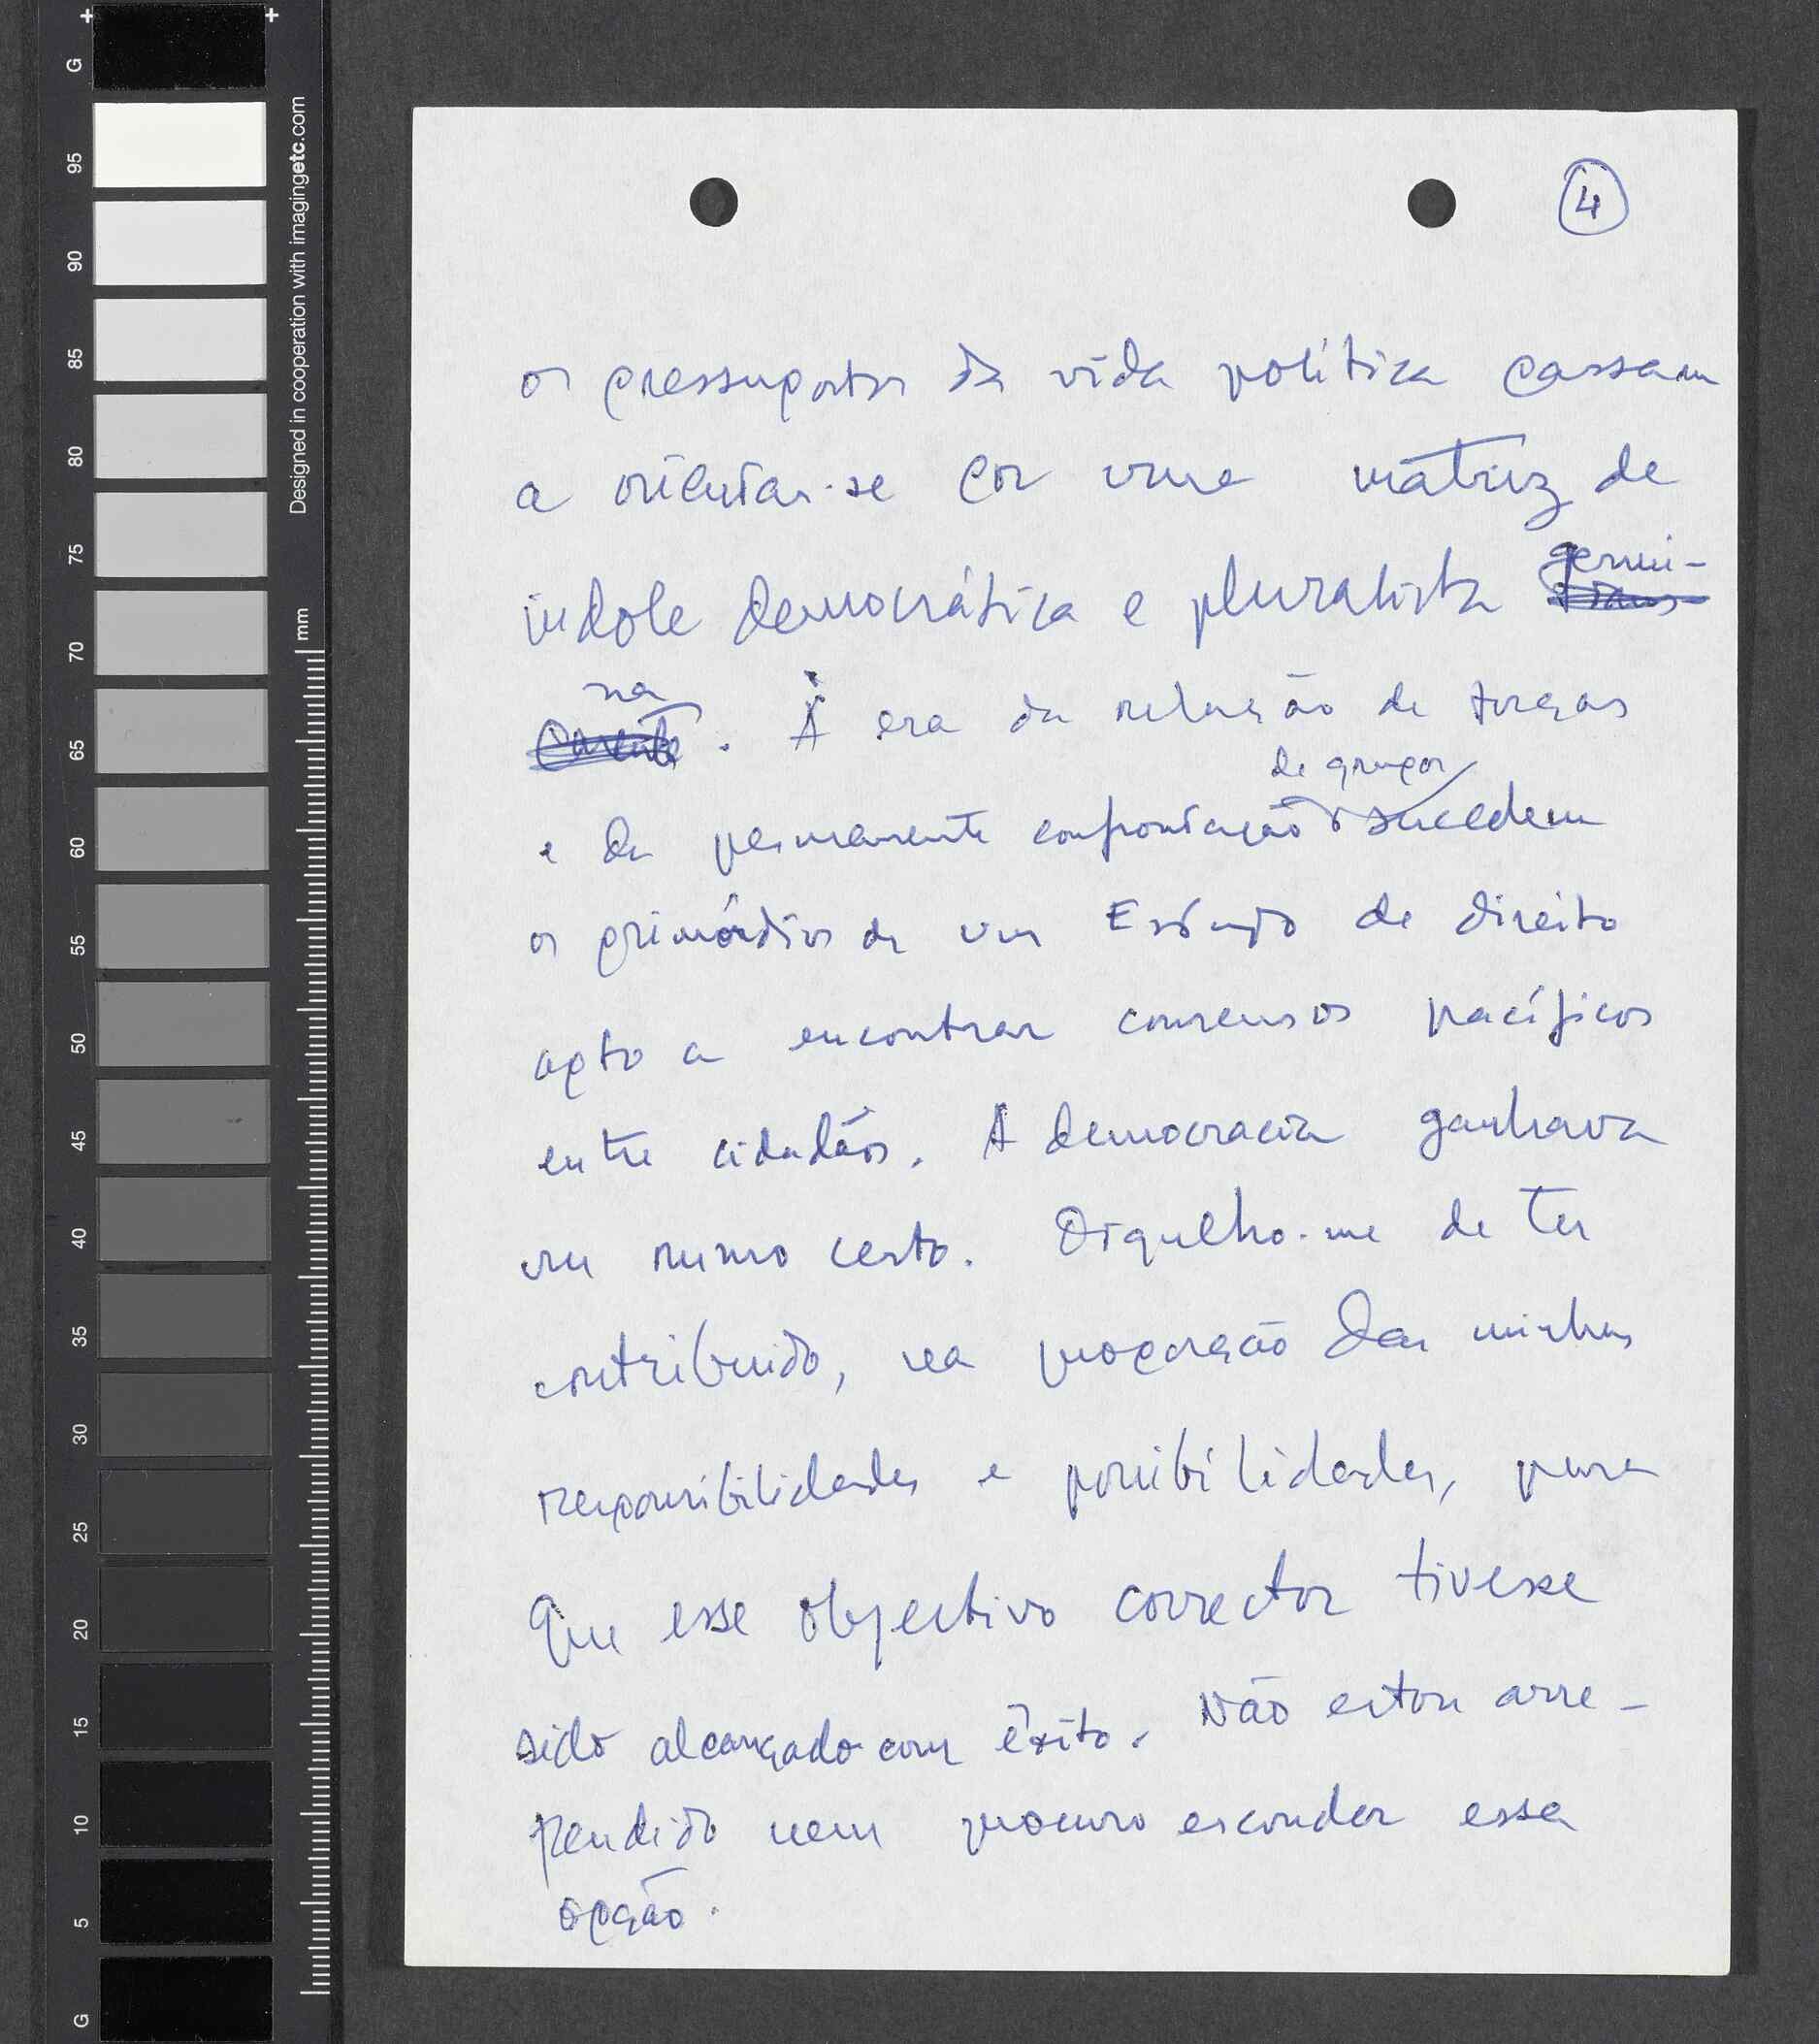 4
os pressupostos da vida política passam
a orientar-se por uma matriz de
índole democrática e pluralista genui-
na. À era da relação de forças
e da permanente confrontação de grupos sucedem
os primórdios de um Estado de direito
apto a encontrar consensos pacíficos
entre cidadãos. A democracia ganhava
um rumo certo. Orgulho-me de ter
contribuido, na proporção das minhas
responsibilidades e possibilidades, para
que esse objectivo corrector tivesse
sido alcançado com êxito. Não estou arre-
pendido nem procuro esconder essa
opção.
G
95
90
85
80
75
70
65
60
55
50
45
40
35
30
25
20
15
10
5
G
Designed in cooperation with imagingetc.com
mm